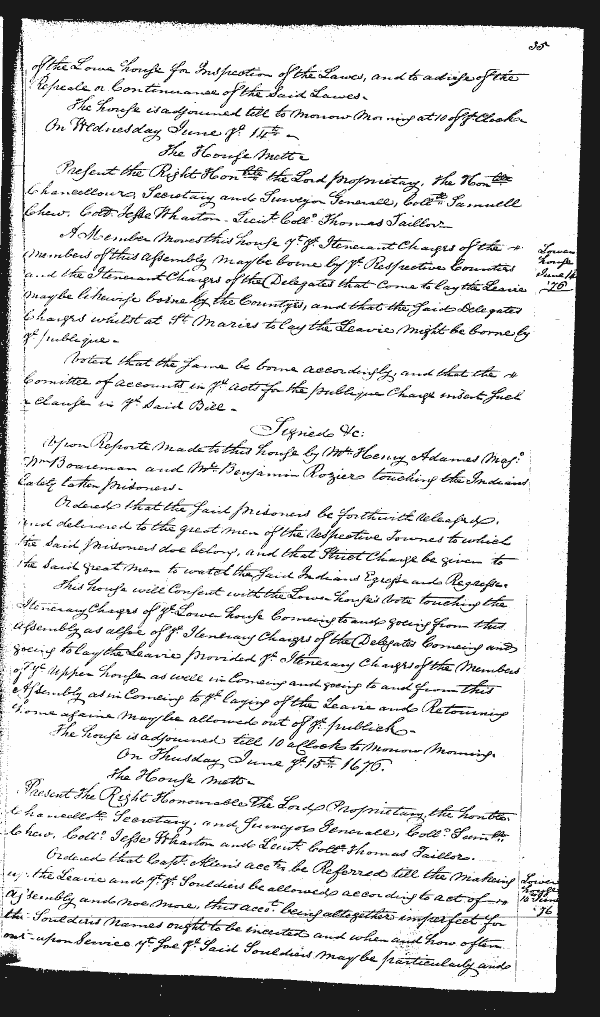 35
of the Lowe house for Inspection of the Lawes, and to advise of the
Repeale or Continuance of the Said Lawes.
The house is adjourned till to Morrow Morning at 10 of ye Clock
On Wednesday June ye 14th
The House Mett
Present the Right Honble the Lord Proprietary, the Honble
Chancellour, Secretary and Surveyor Generall, Collo Samuell
Chew. Collo Jesse Wharton. Lieut Collo Thomas Taillor.
A Member Moves this house yt ye Itenerant Charges of the
Members of this Assembly may be borne by ye Respective Counties
and the Itenerant Charges of the Delegates that Come to lay the Leavie
may be likewise borne by the Countyes, and that the Said Delegates
Charges whilst at St Maries to lay the Leavie might be borne by
ye publique.
Lower
house
June 14
76
Voted that the Same be borne accordingly, and that the
Comittee of accounts in ye acts for the publique Charge insert Such
Clause in ye Said Bill.
Signed &c:
Upon Reporte made to this house by Mr Henry Adames Majr
Wm Boareman and Mr Benjamin Rozier touching the Indians
Lately taken prisoners.
Ordered that the Said prisoners be forthwith released,
and delivered to the great men of the respective Townes to which
the Said prisoners doe belong, and that Strict Charge be given to
the Said great Men to watch the Said Indians Egresse and Regresse.
This house will Consent with the Lower houses Vote touching the
Itenerary Charges of ye Lower house Comeing to and going from this
Assembly as alsoe of ye Itenerary Charges of the Delegates Comeing and
going to lay the Leavie Provided ye Itenerary Charges of the Members
of ye Upper house as well in Comeing and going to and from this
Assembly as in Comeing to ye laying of the Leavie and Retourning
home againe may be allowed out of ye publick.
The house is adjourned till 10 a Clock to Morrow Morning.
On Thusday June ye 15th 1676.
The House Mett
Present The Right Honourable The Lord Proprietary, the honble
Chancellr Secretary, and Surveyor Generall, Collo Samll
Chew. Collo Jesse Wharton and Lieut Collo Thomas Taillor.
Ordered that Capt Allens acct be Referred till the making
up the Leavie and yt ye Souldiers be allowed according to act of
Assembly and noe more, this acct being altogether imperfect for
the Souldiers names ought to be incerted and when and how often
upon Service yt Soe ye Said Souldiers may be particularly and
Lower
house
15 June
76